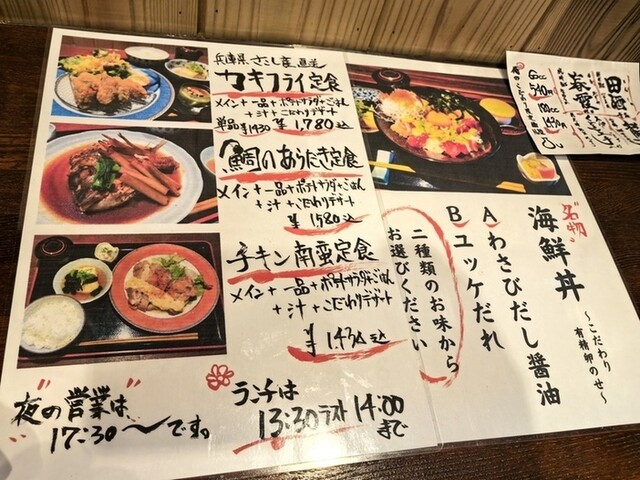 兵庫県さこし産直送
カキフライ定食
メイン+一品+ポテトサラダ+ごはん
+汁+こだわりデザート
単品¥1430 ¥1,780込
鯛のあらたき定食
メイン+一品+ポテトサラダ+ごはん
+汁+こだわりデザート
¥1580込
チキン南蛮定食
メイン+一品+ポテトサラダ+ごはん
+汁+こだわりデザート
¥1430込
ランチは
13:30ラスト14:00
まで
夜の営業は
17:30〜です。
"名物"
海鮮丼
〜こだわり
有精卵のせ〜
Aわさびだし醤油
Bユッケだれ
二種類のお味から
お選びください